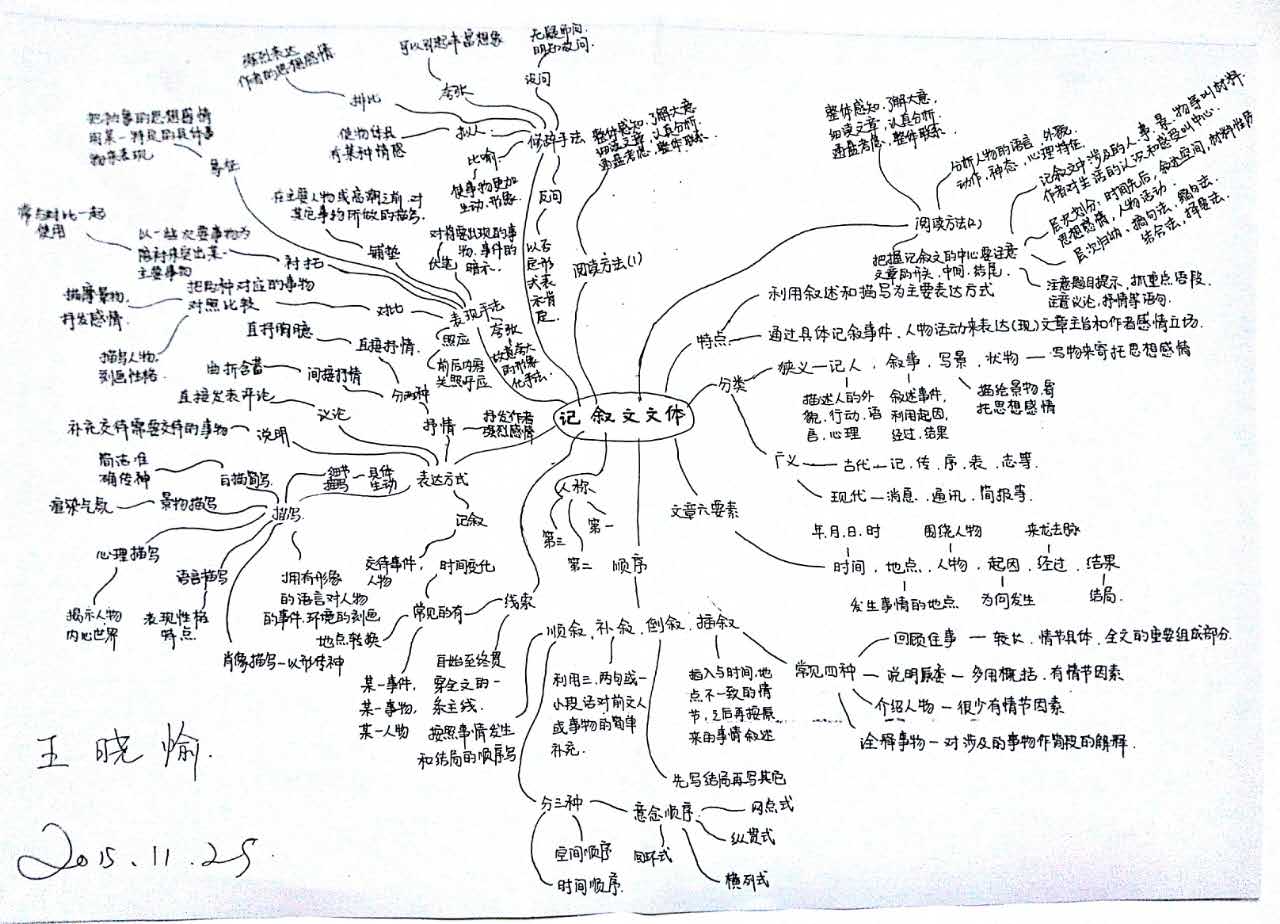 记叙文文体
阅读方法(2)
整体感知,了解大意.
细读文章,认真分析.
通盘考虑,整体联系.
分析人物的语言、外貌,
动作,神态,心理特征.
记叙文中涉及的人、事、景、物等叫材料.
作者对生活的认识和感受叫中心.
层次划分:时间先后,叙述空间,材料性质
思想感情,人物活动.
层次归纳、摘句法、缩句法.
结合法、择要法.
把握记叙文的中心要注意
文章的开头,中间,结尾.
注意题目提示,抓重点语段.
注意议论,抒情等语句.
特点
利用叙述和描写为主要表达方式
通过具体记叙事件,人物活动来表达(现)文章主旨和作者感情立场.
分类
狭义—记人,叙事,写景,状物—写物来寄托思想感情
描述人的外
貌,行动,语
言,心理
叙述事件,
利用起因,
经过,结果
描绘景物,寄
托思想感情
广义—古代—记,传,序,表,志等.
现代—消息,通讯,简报等.
文章六要素
年.月.日.时
围绕人物
来龙去脉
时间,地点,人物,起因,经过,结果
发生事情的地点
为何发生
结局.
顺序
顺叙,补叙,倒叙,插叙
常见四种
回顾往事—较长,情节具体,全文的重要组成部分.
说明原委—多用概括,有情节因素
介绍人物—很少有情节因素
诠释事物—对涉及的事物作简段的解释.
插入与时间,地
点不一致的情
节,之后再按原
来的事情叙述
先写结局再写其它
利用三,两句或一
小段话对前文人
或事物的简单
补充.
按照事情发生
和结局的顺序写
分三种
空间顺序
时间顺序.
意念顺序
网点式
纵贯式
横列式
回环式
人称
第一
第二
第三
线索
自始至终贯
穿全文的一
条主线.
常见的有
时间变化
地点转换
某一事件,
某一事物,
某一人物
表达方式
记叙
交待事件,
人物
描写
细节
描写
具体
生动
白描简写
简洁准
确传神
景物描写
渲染气氛
心理描写
揭示人物
内心世界
语言描写
表现性格
特点
肖像描写—以形传神
拥有形象
的语言对人物
的事件,环境的刻画
说明
补充交待需要交待的事物
议论
直接发表评论
抒情
抒发作者
强烈感情
分两种
直接抒情.
直抒胸臆
间接抒情
曲折含蓄
表现手法
夸张
故意夸大
的形象
化手法.
照应
前后内容
关照呼应
对比
把两种对应的事物
对照比较
描摩景物,
抒发感情.
描写人物,
刻画性格.
衬托
以一些次要事物为
陪衬来突出某一
主要事物
常与对比一起
使用
象征
把抽象的思想感情
用某一特定的具体事
物来表现
铺垫
在主要人物或高潮之前,对
其他事物所做的描写.
伏笔
对将要出现的事
物、事件的
暗示.
修辞手法
比喻
使事物更加
生动.形象.
拟人
使物体具
有某种情感
排比
强烈表达
作者的思想感情
夸张
可以引起丰富想象
设问
无疑而问.
明知故问.
反问
以否
定形
式表
示肯
定.
阅读方法(1)
整体感知,了解大意
细读文章,认真分析.
通盘考虑,整体联系.
王晓愉.
2015.11.25.